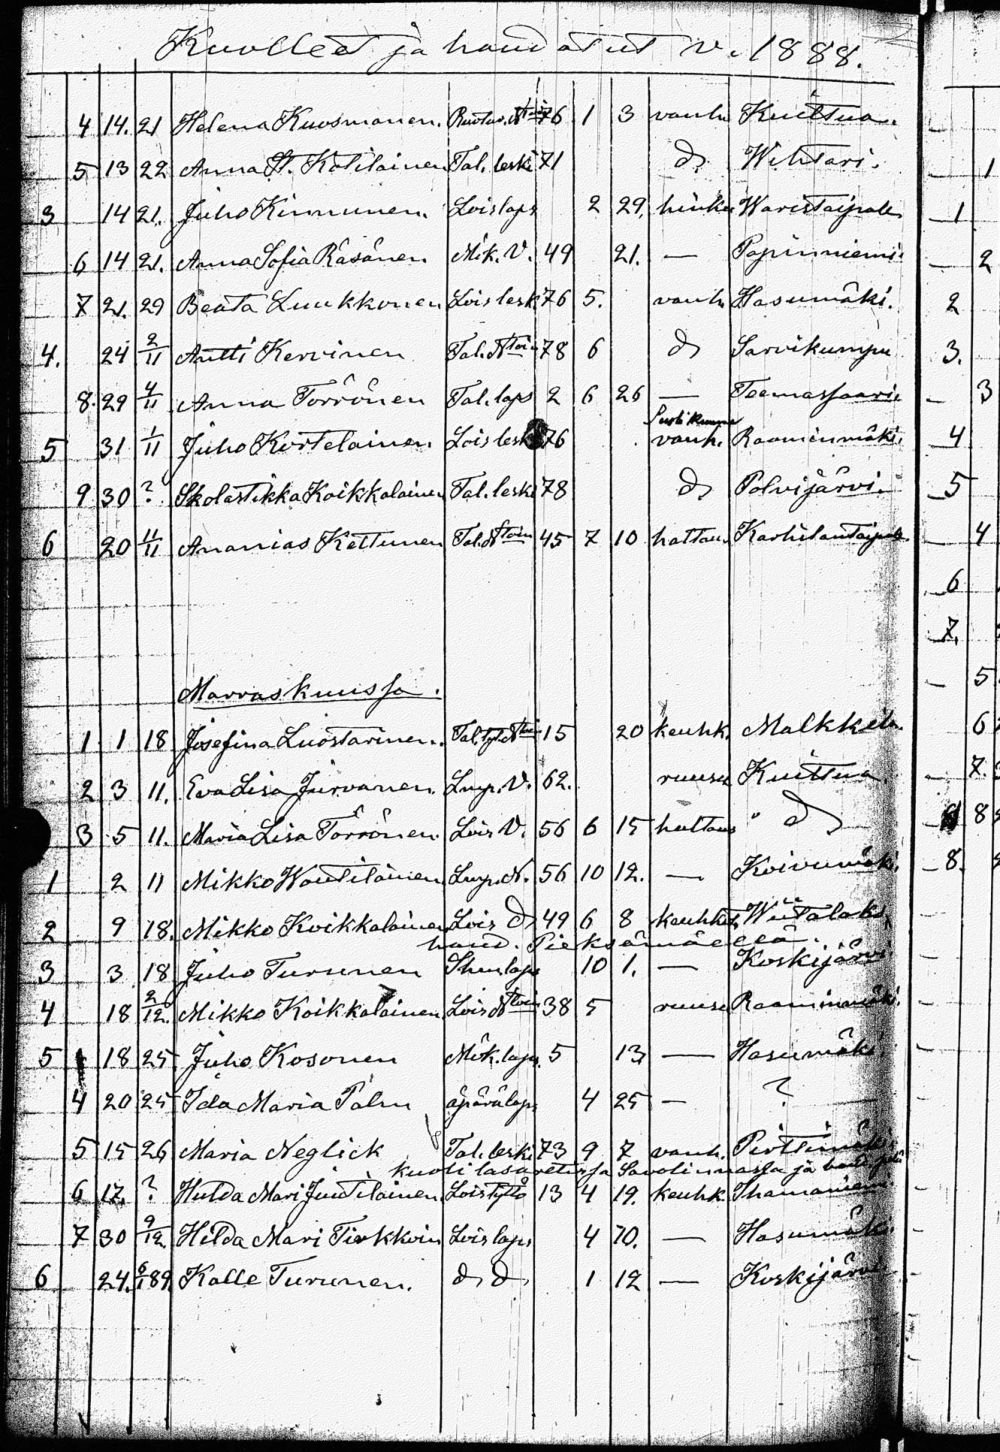 Kuolleet ja haudatut v. 1888.
4 14. 21 Helena Kuosmanen. 76 1 3 vanh. Kuittua.
5 13 22 Anna St. Kotilainen Tal. leski 71 d:o Wihtari.
3 14 21. Juho Kinnunen. Lois laps 2 29. hinku Waristaipale
6 14 21. Anna Sofia Räsänen Mök. V. 49 21. — Papinniemi.
7 21. 29 Beata Luukkonen Lois leski 76 5. vanh. Hasumäki.
4. 24 2/11 Antti Kervinen Tal. 78 6 d:o Sarvikumpu
8. 29 4/11 Anna Törrönen Tal. laps 2 6 26 — Teemassaari.
5 31 1/11 Juho Kortelainen Lois leski 76 vanh. Raaminmäki.
9 30 ? Skolastikka Koikkalainen Tal. leski 78 d:o Polvijärvi.
6 20 11/11 Ananias Kettunen Tal. 45 7 10 haltau. Karhilantaipale
Marraskuussa.
1 1 18 Josefina Luostarinen. 15 20 keuhk. Malkkila
2 3 11. Eva Lisa Jurvanen. Lmp. V. 62. ruusu Kuittua.
3 5 11. Maria Lisa Törrönen Lois V. 56 6 15 haltaus " d:o
1 2 11 Mikko Wautilainen Lmp. N. 56 10 12. — Koivumäki.
2 9 18. Mikko Koikkalainen Lois d:o 49 6 8 keuhkot. Wiitalaks.
haud. Pieksämäellä.
3 3 18 Juho Turunen laps 10 1. — Koskijärvi
4 18 2/12. Mikko Koikkalainen Lois 38 5 ruusu Raaminmäki.
5 18 25 Juho Kosonen Mök. laps. 5 13 — Hasumäki
4 20 25 Ida Maria Palm äpärälaps 4 25 — ?
5 15 26 Maria Neglick Tal. leski 73 9 7 vanh. Pirttimäki
kuoli lasaretissa Savolinnassa ja
6 12. ? Hulda Mari Juutilainen Lois tyttö 13 4 19. keuhk. Ihamaniemi
7 30 9/12 Hilda Mari Tirkkoin Lois laps 4 70. — Hasumäki.
6 24. 189. Kalle Turunen. d:o d:o 1 12 — Koskijärvi
1
1
2
2
3.
3
4
5
4
6
7.
5
6
7.
8
8.